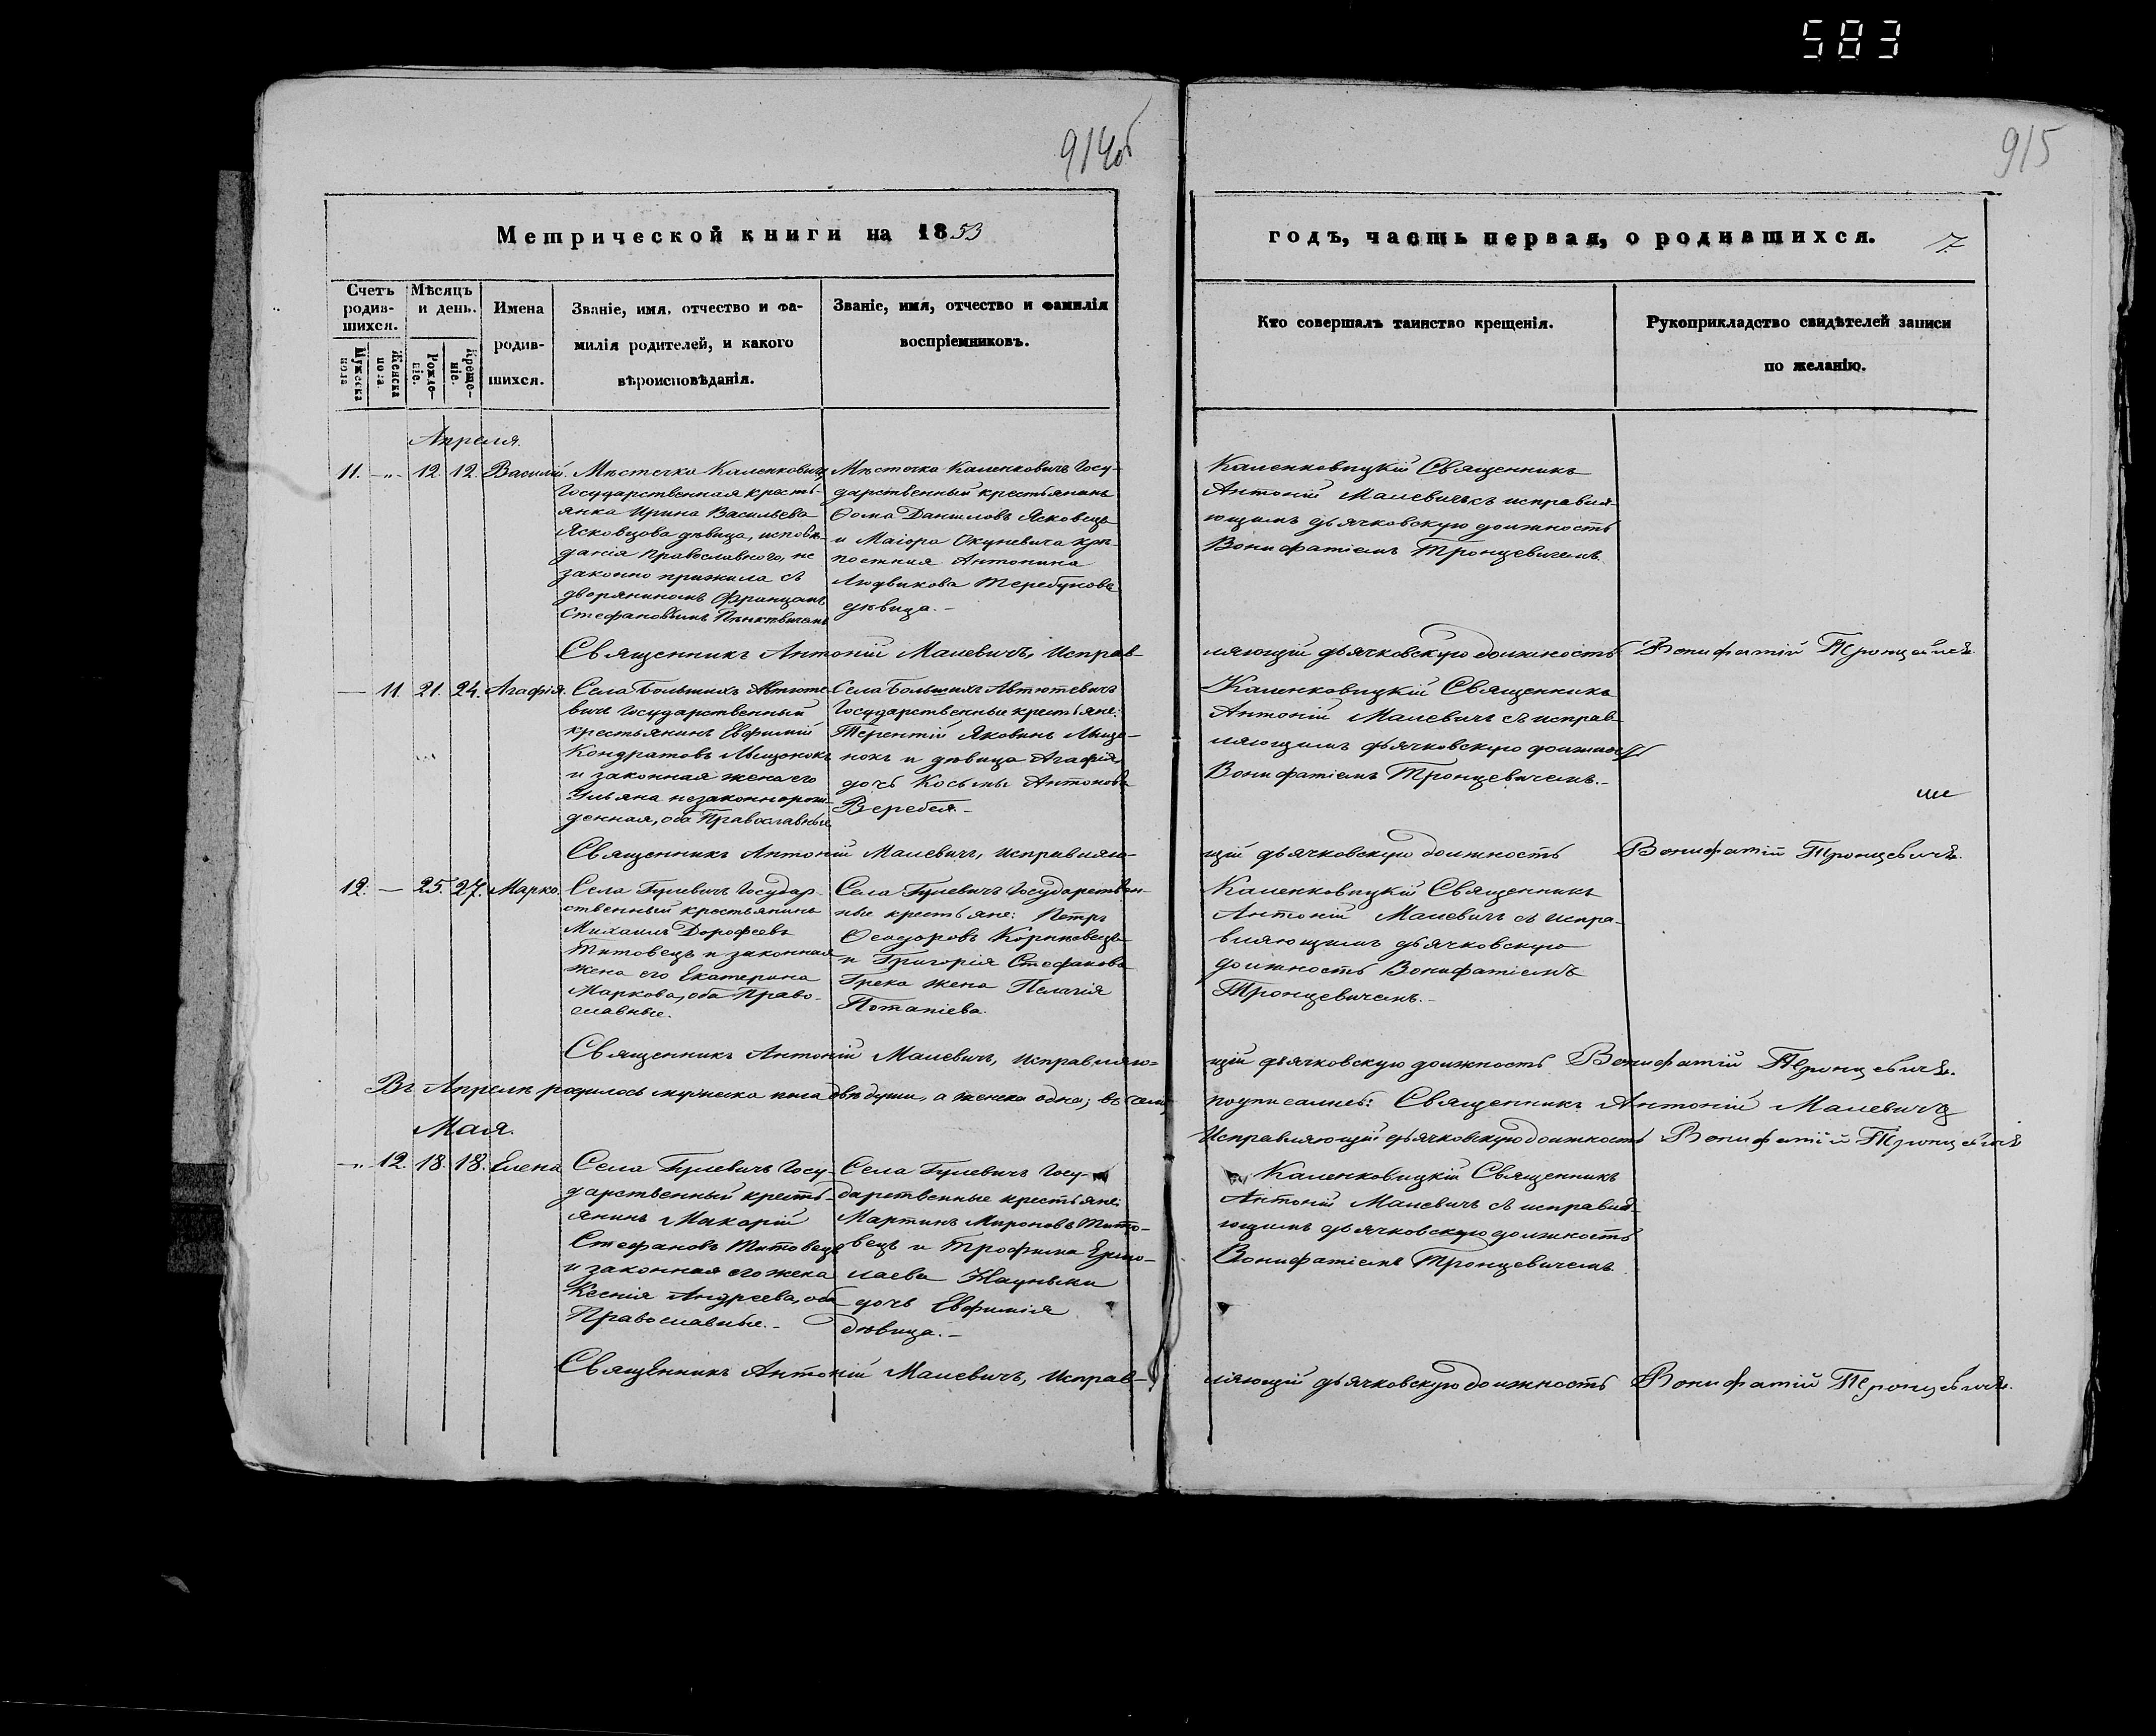 583
914об
915
Метрической книги на 1853
годъ, часть первая, о родившихся. 7
Счетъ родив- шихся.
Мѣсяцъ и день.
Мужеска пола
Женска пола.
Рожде- ніе.
Креще- ніе.
Имена родив- шихся.
Званіе, имя, отчество и фа-
милія родителей, и какого
вѣроисповѣданія.
Званіе, имя, отчество и фамилія
воспріемниковъ.
Кто совершалъ таинство крещенія.
Рукоприкладство свидѣтелей записи
по желанію.
Апреля.
11. -„- 12. 12. Василій.
Мѣстечка Каленковичъ
Государственная кресть-
янка Ирина Васильева
Ясковцова дѣвица, исповѣ-
данія Православнаго, не
законно прижила съ
дворяниномъ Францомъ
Стефановымъ
Мѣстечка Каленковичъ Госу-
дарственный крестьянинъ
Ѳома Даниловъ Ясковецъ
и Маіора Окуневича крѣ-
постная Антонина
Людвикова Теребунова
дѣвица. -
Каленковицкій Священникъ
Антоній Малевичъ съ исправля-
ющимъ дьячковскую должность
Вонифатіемъ Тронцевичемъ.
Священникъ Антоній Малевичъ, Исправ-
ляющій дьячковскую должность Вонифатій Тронцевичъ.
— 11. 21. 24. Агафія.
Села Большихъ Автюте-
вичъ Государственный
крестьянинъ Евфимій
Кондратовъ Мышонокъ
и законная жена его
Ульяна незаконнорож-
денная, оба Православные
Села Большихъ Автютевичъ
Государственные крестьяне:
Терентій Яковинъ Мыше-
нокъ и дѣвица Агафія
дочь Косьмы Антонова
Веребея. -
Каленковицкій Священникъ
Антоній Малевичъ съ исправ-
ляющимъ дьячковскую должность
Вонифатіемъ Тронцевичемъ. -
Священникъ Антоній Малевичъ, Исправляю-
щій дьячковскую должность Вонифатій Тронцевичъ.
12. — 25. 27. Марко.
Села Гулевичъ Государ-
ственный крестьянинъ
Михаилъ Дорофеевъ
Титовецъ и законная
жена его Екатерина
Маркова, оба Право-
славные.
Села Гулевичъ Государствен-
ные крестьяне: Петръ
Ѳеодоровъ Корниевецъ
и Григорія Стефанова
Грека жена Пелагія
Потапіева.
Каленковицкій Священникъ
Антоній Малевичъ съ испра-
вляющимъ дьячковскую
должность Вонифатіемъ
Тронцевичемъ. -
Священникъ Антоній Малевичъ, Исправляю-
щій дьячковскую должность Вонифатій Тронцевичъ.
Въ Апрелѣ родилось мужеска пола двѣ души, а женска одна; въ чемъ
подписались: Священникъ Антоній Малевичъ
Исправляющій дьячковскую должность Вонифатій Тронцевичъ
Мая.
-„- 12. 18. 18. Елена
Села Гулевичъ Госу-
дарственный кресть-
янинъ Макарій
Стефановъ Титовецъ
и законная его жена
Ксенія Андреева, оба
Православные. -
Села Гулевичъ Госу-
дарственные крестьяне:
Мартинъ Мироновъ Тито-
вецъ и Трофима Ермо-
лаева
дочь Евфимія
дѣвица. -
Каленковицкій Священникъ
Антоній Малевичъ съ исправля-
ющимъ дьячковскую должность
Вонифатіемъ Тронцевичемъ
Священникъ Антоній Малевичъ, Исправ-
ляющій дьячковскую должность Вонифатій Тронцевичъ.